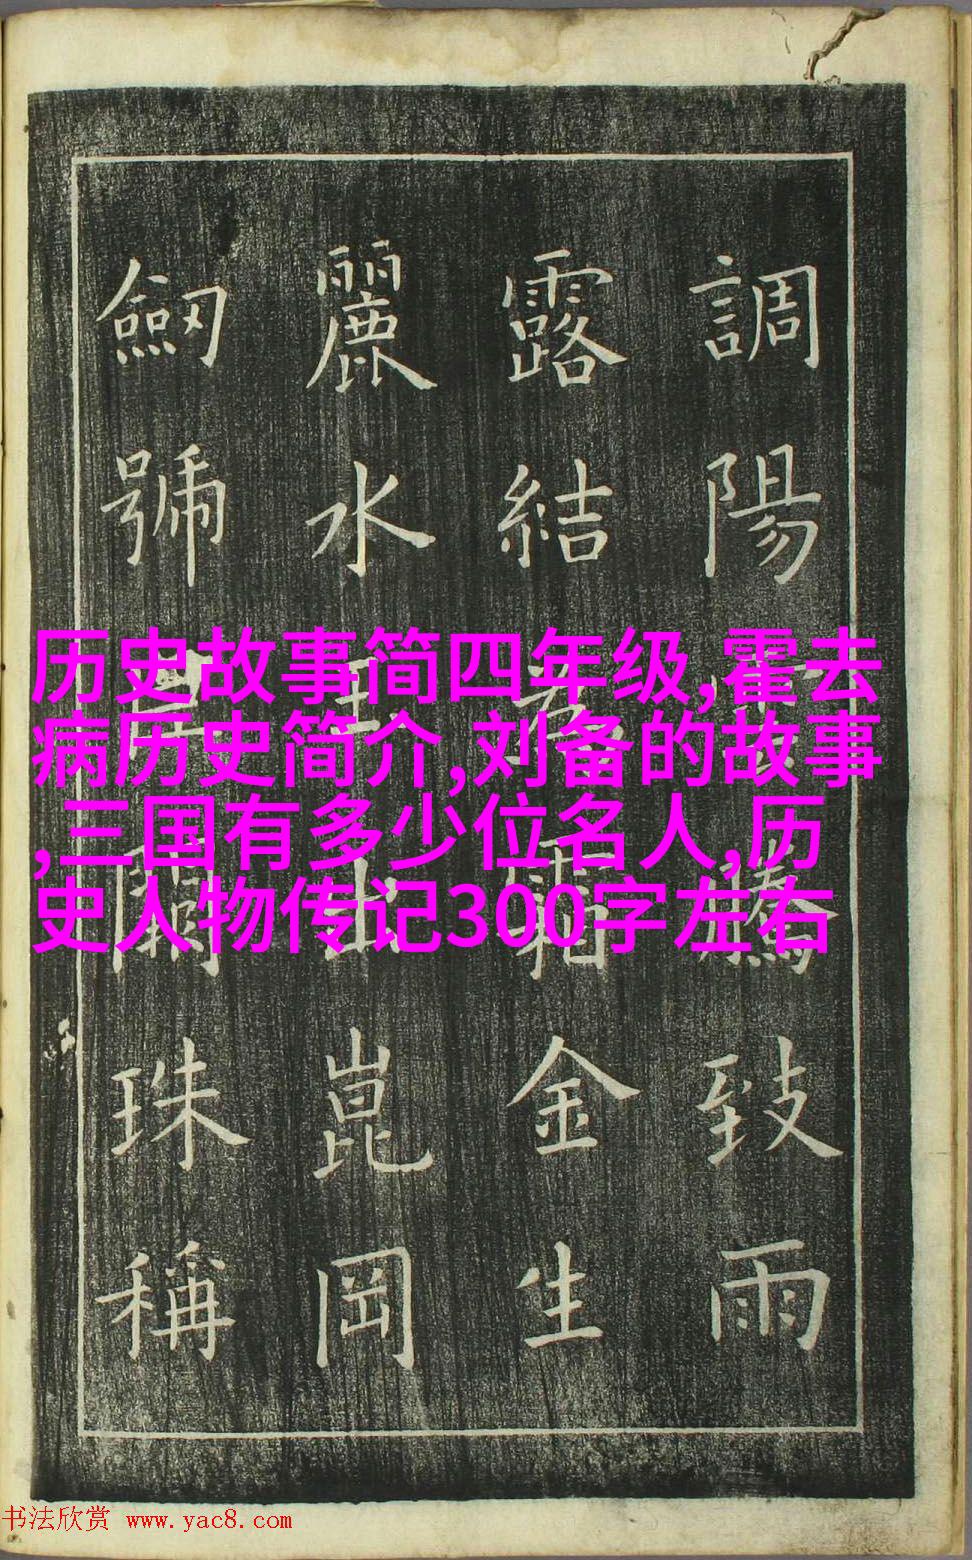 調陽雲騰致雨
露結為霜金生
麗水玉出崑岡
劒號巨闕珠稱
历史故事简四年级,霍去
病历史简介,刘备的故事
,三国有多少位名人,历
史人物传记300字左右
书法欣赏 www.yac8.com